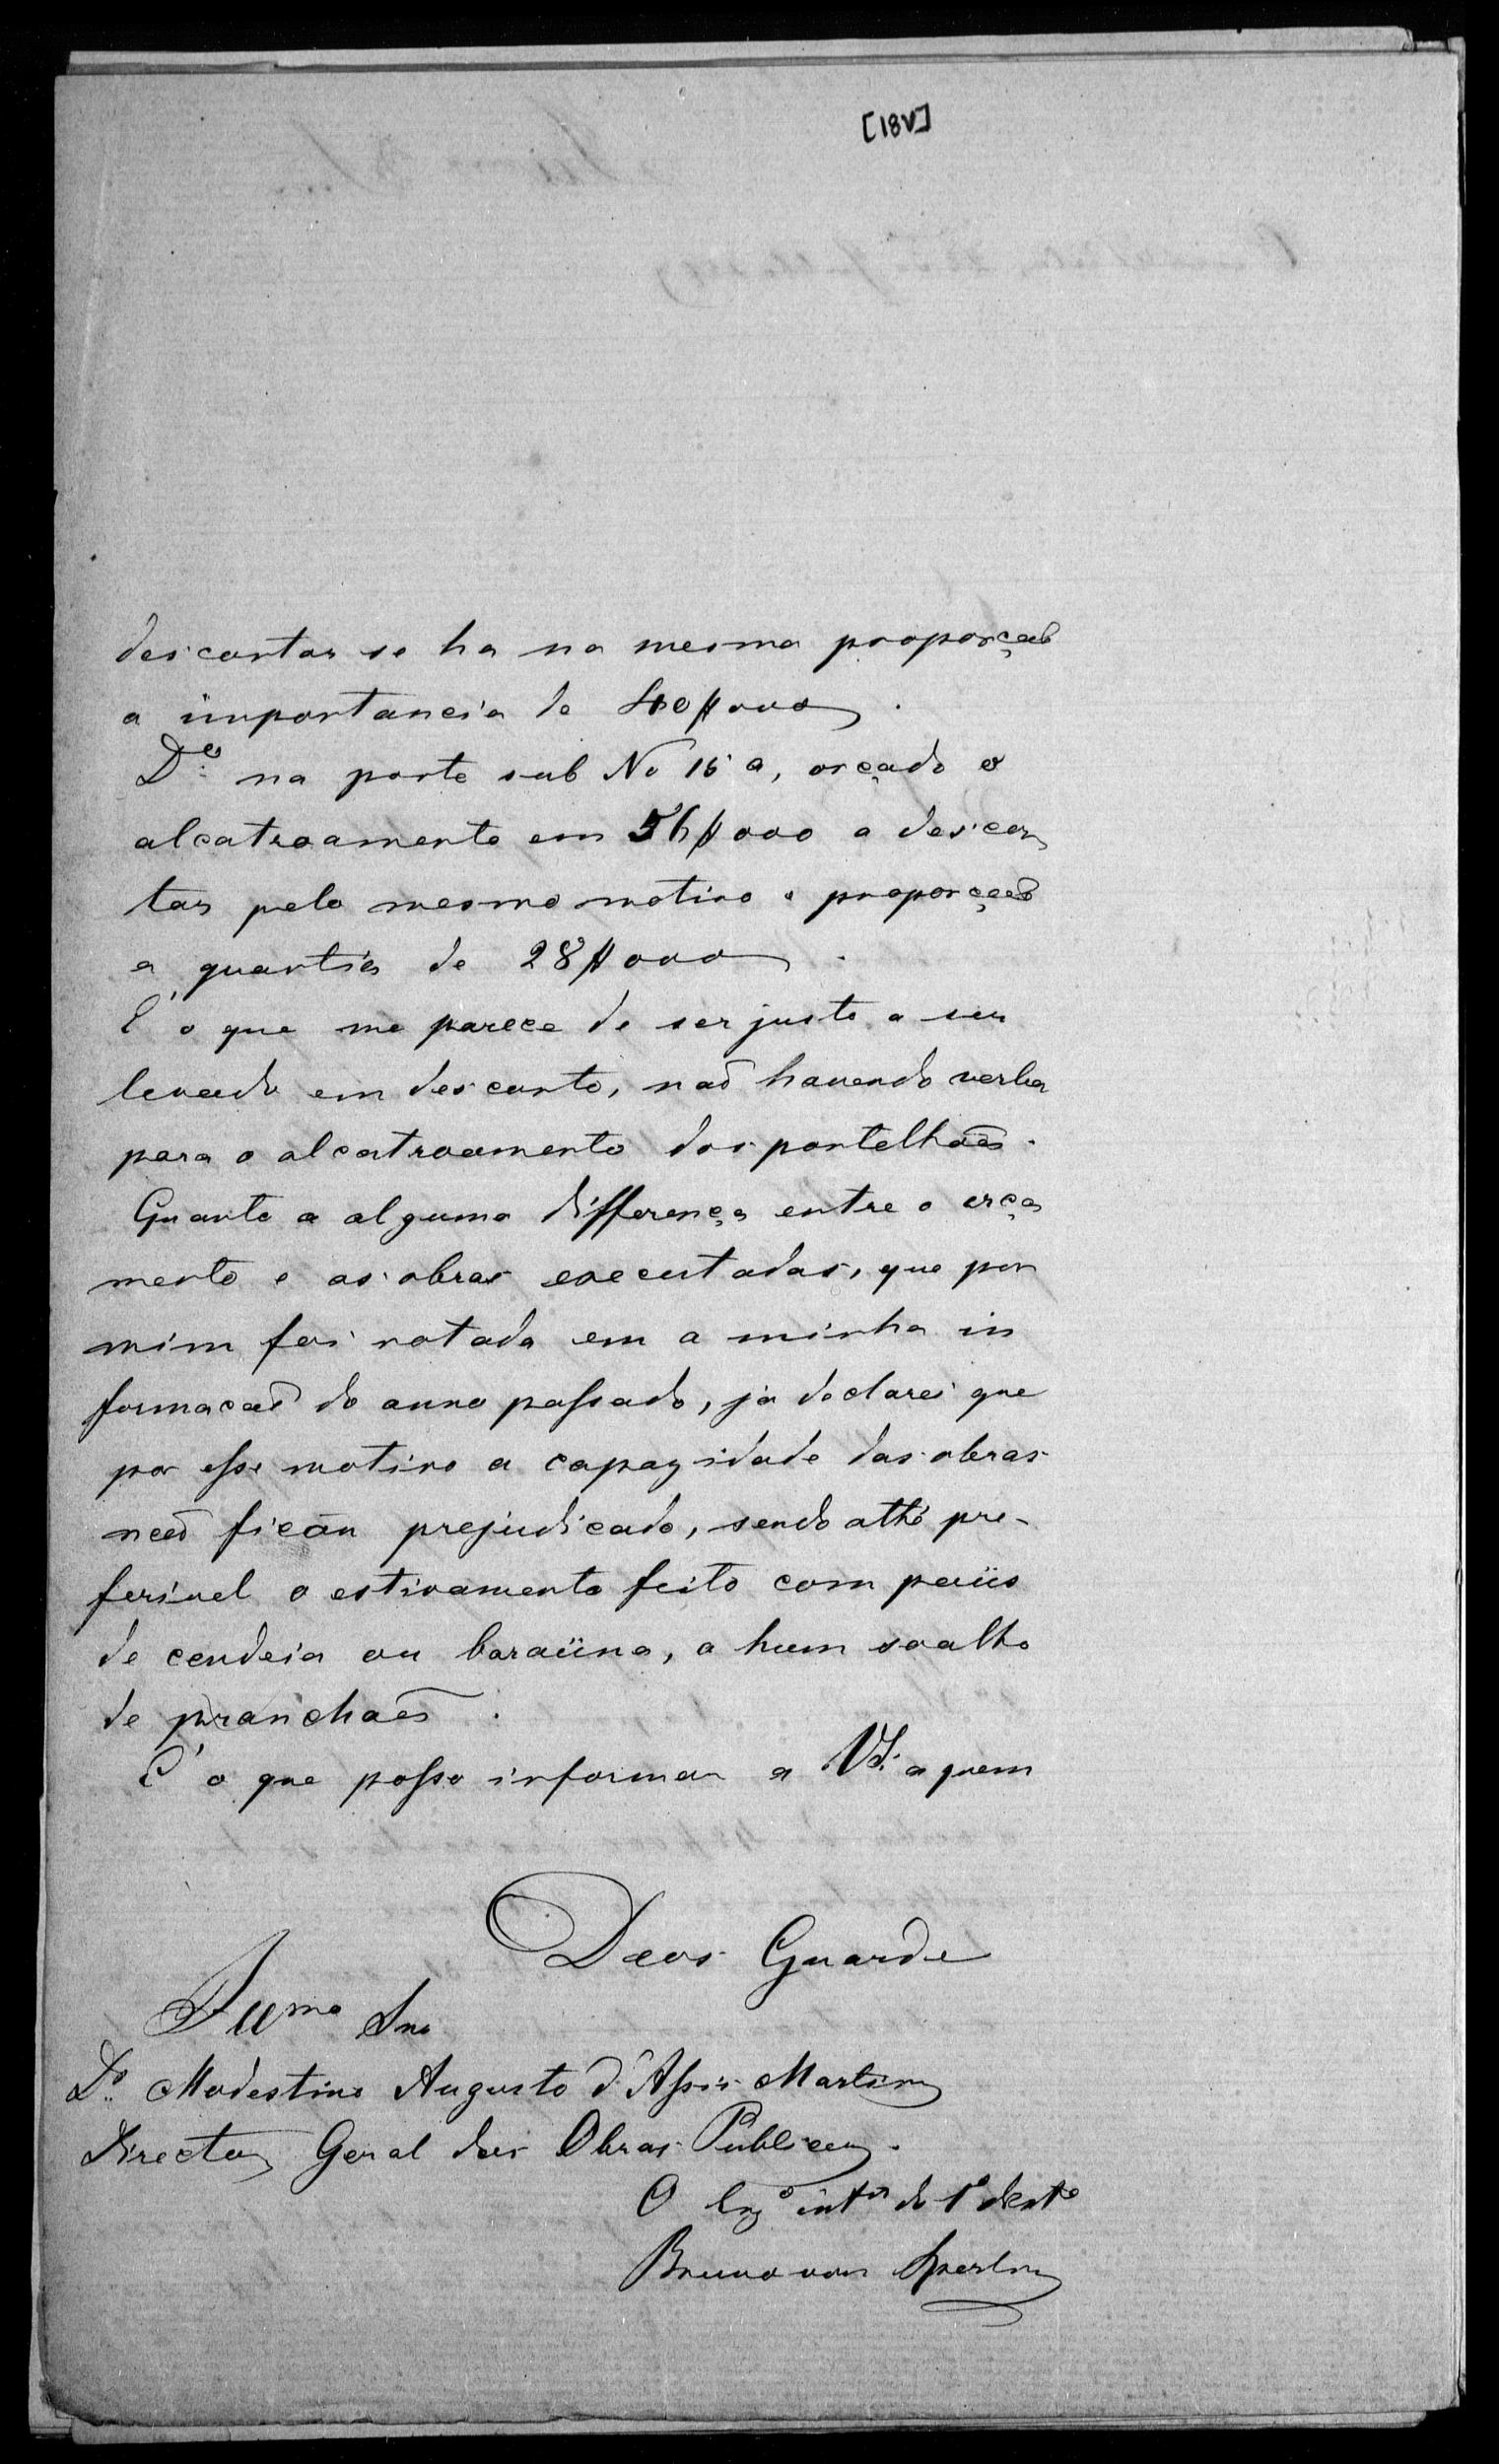 [18V]
descontar se ha na mesma proporçaõ
a importancia de 40$000.
D.º na ponte sub No 15 a, orçado o
alcatroamento em 56$000 a descon
tar pelo mesmo motivo e proporçaõ
a quantia de 28$000.
E' o que me parece de ser justo a ser
levado em desconto, naõ havendo verba
para o alcatroamento dos pontelhoẽs.
Quanto a alguma differença entre o orça
mento e as obras executadas, que por
mim foi notada em a minha in
formacaõ do anno passado, já declarei que
por esse motivo a capazidade das obras
naõ ficão prejudicado, sendo athé pre-
ferivel o estivamento feito com paüs
de candeia ou baraüna, a hum soalho
de pranchoẽs.
E' o que posso informar a VS. a quem
Deos Guarde
Illmo Snr
Dr. Modestino Augusto d'Assis Martins
Director Geral das Obras Publicas.
O Engº intº do 1º distº
Bruno von Sperling